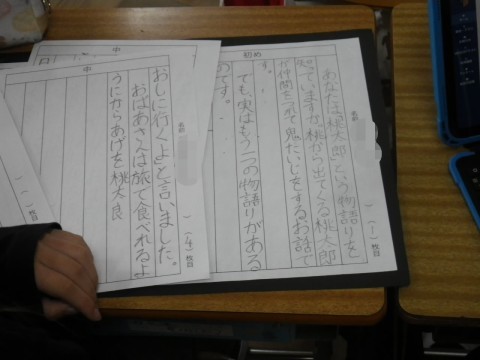 初め
名前
(1)枚目
あなたは「桃太郎」という物語りを
知っていますか。桃から出てくる桃太郎
が仲間をつれて鬼たいじをするお話で
す。
でも実はもう一つの物語りがある
のです。
中
名前
(4)枚目
おしに行くよ」と言いました。
おばあさんは旅で食べれるよ
うにからあげを桃太良
中
()枚目